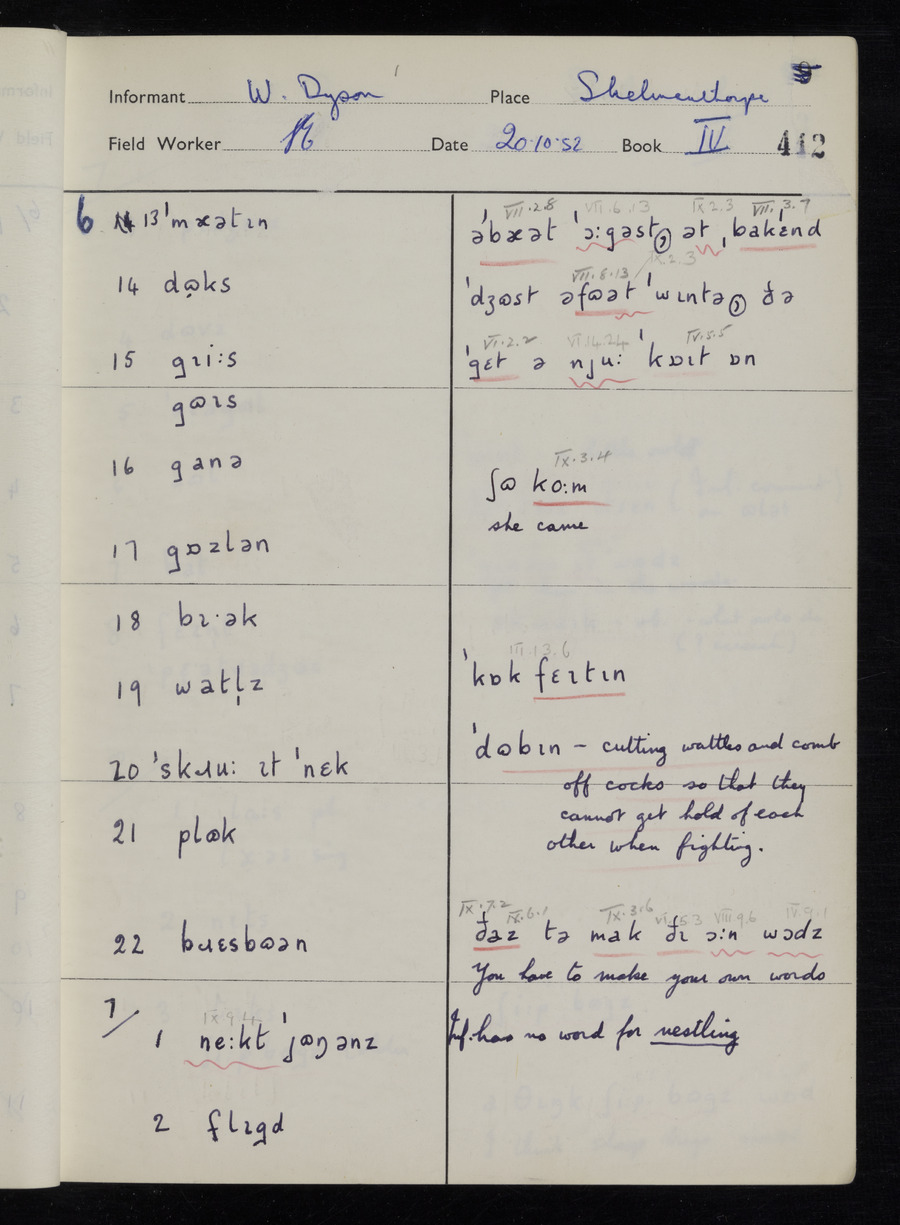 Informant W. Dyson Place Skelmanthorpe
Field Worker Date 20.10.52 Book IV 412
6 13 ˈmɪəətɪn
VII.2.8 VII.6.13 IX.2.3 VII.3.7
əbæət ˈɔ:gəst, ət ˌbakˈɛnd
IX.2.3
14 dɷ̣ks
VII.8.13
ˈdʒɷst əfɷət ˈwɪntə, ðə
15 gɹi:s
VI.2.2 VI.14.24 IV.5.5
ˈgɛt ə nju: ˈkɒɪt ɒn
gɷɪs
16 ganə
IX.3.4
ʃɷ ko:m
she came
17 gɒzlən
18 bɹ·ək
19 watl̩z
III.13.6
ˈkɒk fɛɪtɪn
20 ˈskɹu: ɪt ˈnɛk
ˈdɷbɪn – cutting wattles and comb
off cocks so that they
cannot get hold of each
other when fighting.
21 plɷk
22 bɹɛsbɷən
IX.7.2 IX.6.1 IX.3.6 VI.5.3 VIII.9.6 IV.9.1
ðaz tə mak ðɪ ɔ:n wɔdz
You have to make your own words
7/
IX.9.4
1 ne:kt ˈjɷŋənz
Inf. has no word for nestling
2 flɪgd